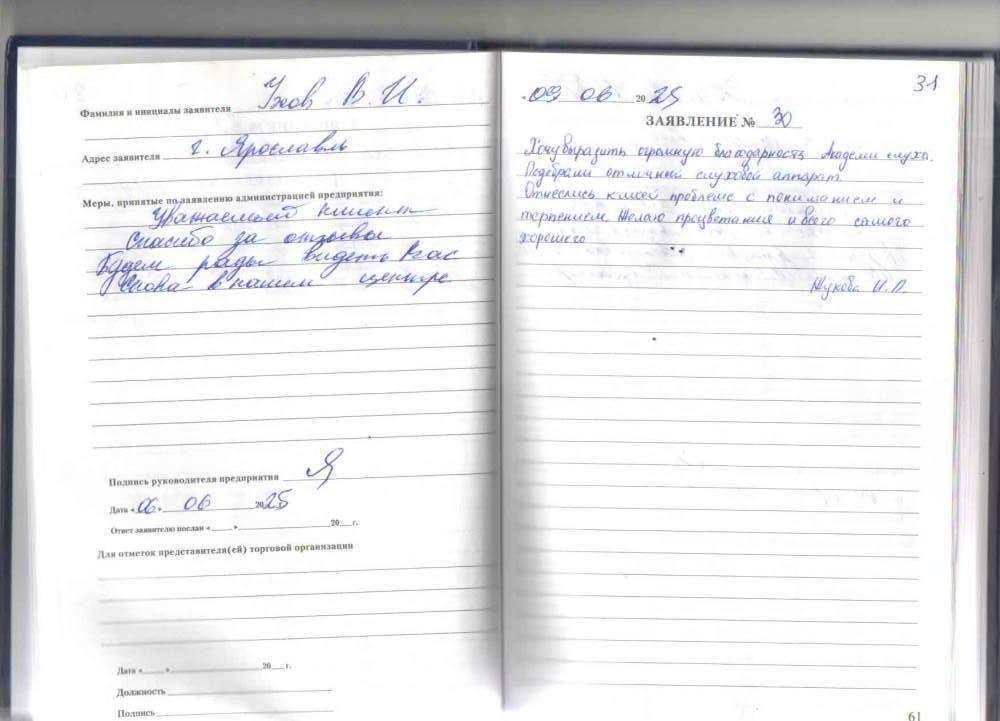 Фамилия и инициалы заявителя Ухов В.И.
Адрес заявителя г. Ярославль
Меры, принятые по заявлению администрацией предприятия:
Уважаемый клиент
Спасибо за отзывы
Будем рады видеть Вас
снова в нашем центре
Подпись руководителя предприятия
Дата «06» 06 2025
Ответ заявителю послан «____» ____ 20__г.
Для отметок представителя(ей) торговой организации
Дата «____» ____ 20__г.
Должность
Подпись
31
«09 06 2025
ЗАЯВЛЕНИЕ № 30
Хочу выразить огромную благодарность Академии слуха.
Подобрали отличный слуховой аппарат.
Отнеслись к моей проблеме с пониманием и
терпением. Желаю процветания и всего самого
хорошего
Жукова И.П.
61